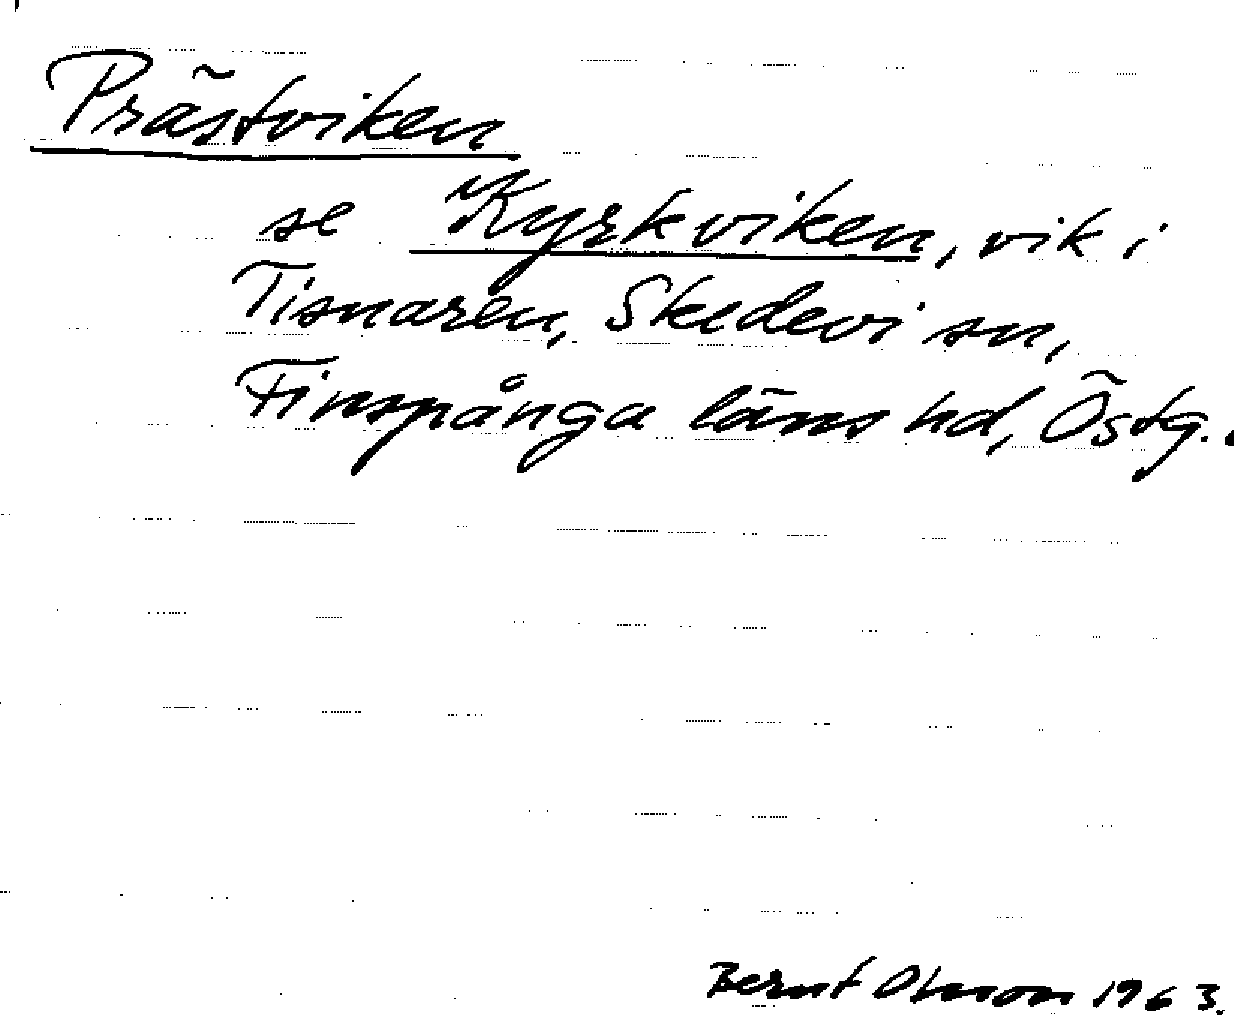 Prästviken
se Kyrkviken, vik i
Tisnaren, Skedevi sn,
Finspånga läns hd, Östg..
Bernt Olsson 1963.